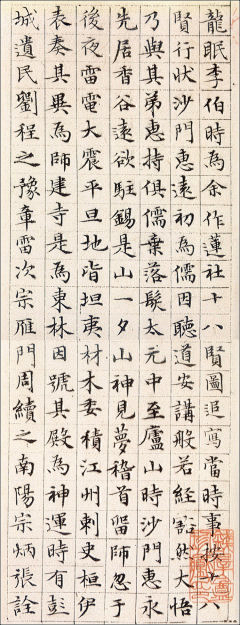 龍眠李伯時為余作蓮社十八賢圖追寫當時事按十八
賢行狀沙門惠遠初為儒因聽道安講般若經豁然大悟
乃與其弟惠持俱儒棄落髮太元中至廬山時沙門惠永
先居香谷遠欲駐錫是山一夕山神見夢稽首留師忽于
後夜雷電大震平旦地皆坦夷材木委積江州刺史桓伊
表奏其異為師建寺是為東林因號其殿為神運時有彭
城遺民劉程之豫章雷次宗雁門周續之南陽宗炳張詮